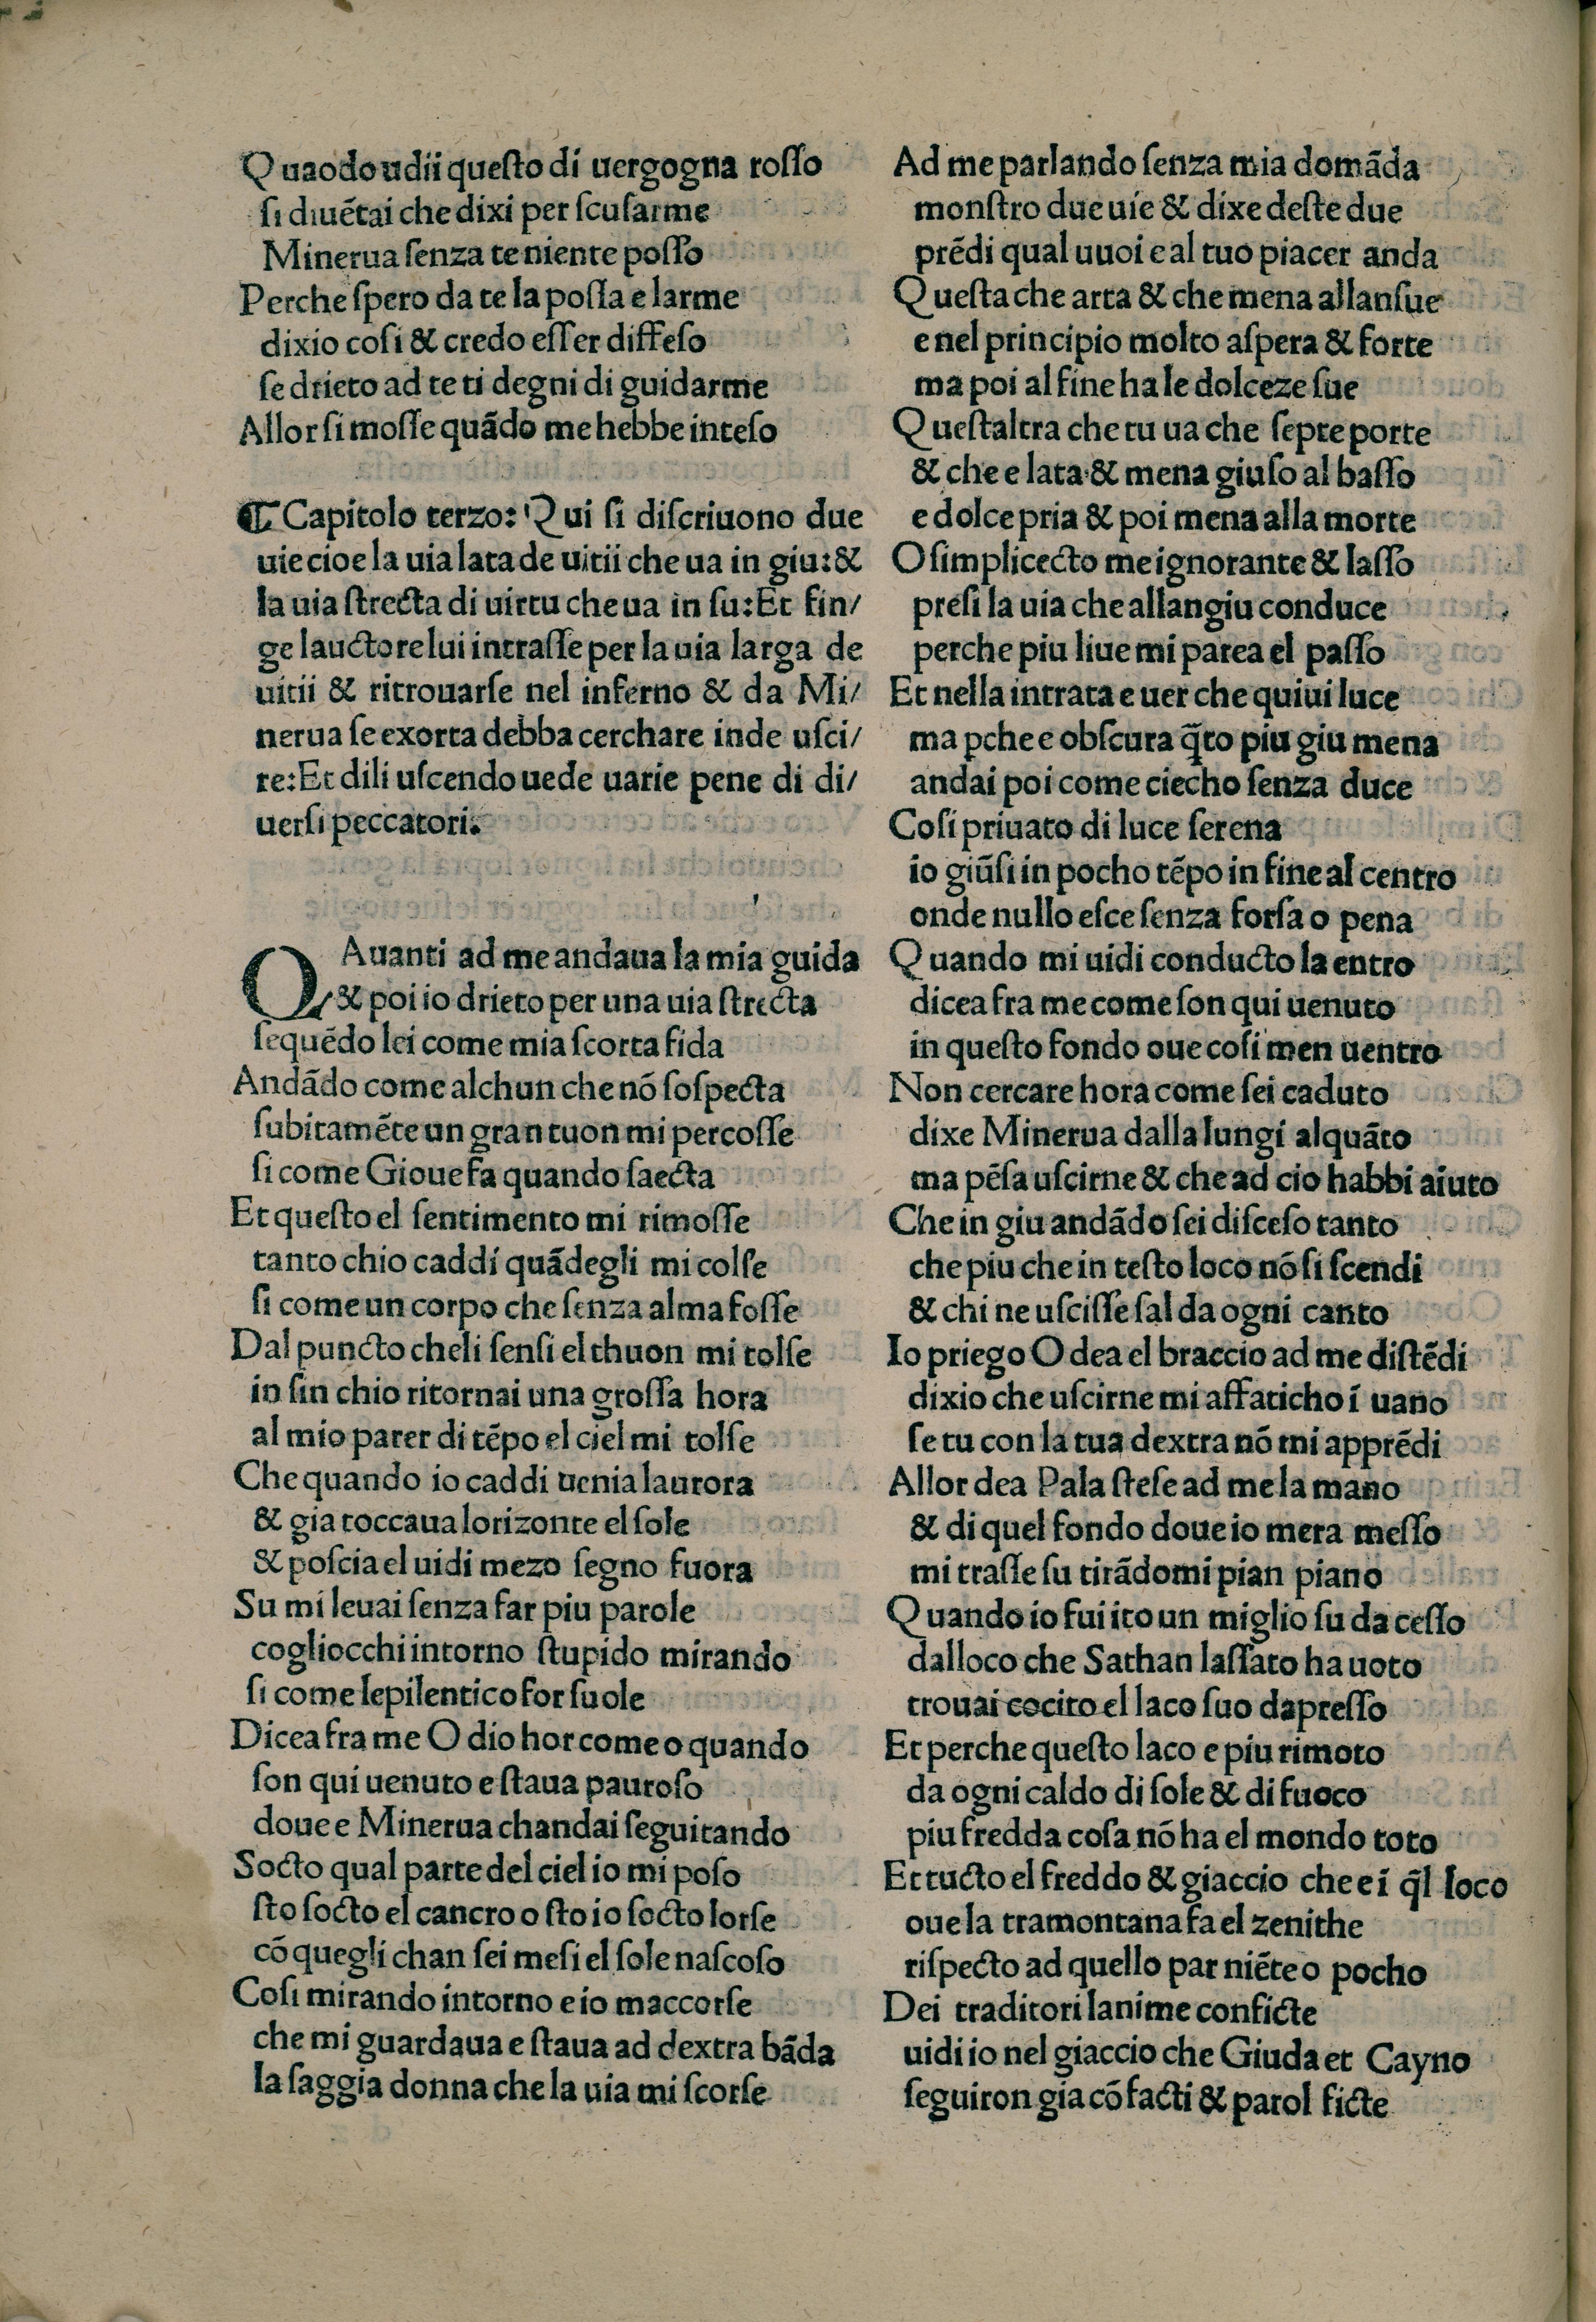 Quaodo udii queſto di uergogna roſſo
ſi diuētai che dixi per ſcuſarme
Minerua ſenza te niente poſſo
Perche ſpero da te la poſſa e larme
dixio coſi & credo eſſer diffeſo
ſe drieto ad te ti degni di guidarme
Allor ſi moſſe quādo me hebbe inteſo
¶ Capitolo terzo: Qui ſi diſcriuono due
uie cioe la uia lata de uitii che ua in giu: &
la uia ſtrecta di uirtu che ua in ſu: Et fin/
ge lauctore lui intraſſe per la uia larga de
uitii & ritrouarſe nel inferno & da Mi/
nerua ſe exorta debba cerchare inde uſci/
re: Et dili uſcendo uede uarie pene di di/
uerſi peccatori.
QAuanti ad me andaua la mia guida
& poi io drieto per una uia ſtrecta
ſequēdo lei come mia ſcorta fida
Andādo come alchun che nō ſoſpecta
ſubitamēte un gran tuon mi percoſſe
ſi come Gioue fa quando ſaecta
Et queſto el ſentimento mi rimoſſe
tanto chio caddi quādegli mi colſe
ſi come un corpo che ſenza alma foſſe
Dal puncto cheli ſenſi el thuon mi tolſe
in ſin chio ritornai una groſſa hora
al mio parer di tēpo el ciel mi tolſe
Che quando io caddi uenia laurora
& gia toccaua lorizonte el ſole
& poſcia el uidi mezo ſegno fuora
Su mi leuai ſenza far piu parole
cogliocchi intorno ſtupido mirando
ſi come lepilentico for ſuole
Dicea fra me O dio hor come o quando
ſon qui uenuto e ſtaua pauroſo
doue e Minerua chandai ſeguitando
Socto qual parte del ciel io mi poſo
ſto ſocto el cancro o ſto io ſocto lorſe
cō quegli chan ſei meſi el ſole naſcoſo
Coſi mirando intorno e io maccorſe
che mi guardaua e ſtaua ad dextra bāda
la ſaggia donna che la uia mi ſcorſe
Ad me parlando ſenza mia domāda
monſtro due uie & dixe deſte due
prēdi qual uuoi e al tuo piacer anda
Queſta che arta & che mena allanſue
e nel principio molto aſpera & forte
ma poi al fine ha le dolceze ſue
Queſtaltra che tu ua che ſepte porte
& che e lata & mena giuſo al baſſo
e dolce pria & poi mena alla morte
O ſimplicecto me ignorante & laſſo
preſi la uia che allangiu conduce
perche piu liue mi parea el paſſo
Et nella intrata e uer che quiui luce
ma pche e obſcura q̄to piu giu mena
andai poi come ciecho ſenza duce
Coſi priuato di luce ſerena
io giūſi in pocho tēpo in fine al centro
onde nullo eſce ſenza forſa o pena
Quando mi uidi conducto la entro
dicea fra me come ſon qui uenuto
in queſto fondo oue coſi men uentro
Non cercare hora come ſei caduto
dixe Minerua dalla lungi alquāto
ma pēſa uſcirne & che ad cio habbi aiuto
Che in giu andādo ſei diſceſo tanto
che piu che in teſto loco nō ſi ſcendi
& chi ne uſciſſe ſal da ogni canto
Io priego O dea el braccio ad me diſtēdi
dixio che uſcirne mi affaticho ī uano
ſe tu con la tua dextra nō mi apprēdi
Allor dea Pala ſteſe ad me la mano
& di quel fondo doue io mera meſſo
mi traſſe ſu tirādomi pian piano
Quando io fui ito un miglio ſu da ceſſo
dalloco che Sathan laſſato ha uoto
trouai cocito el laco ſuo dapreſſo
Et perche queſto laco e piu rimoto
da ogni caldo di ſole & di fuoco
piu fredda coſa nō ha el mondo toto
Et tucto el freddo & giaccio che e ī q̄l loco
oue la tramontana fa el zenithe
riſpecto ad quello par niēte o pocho
Dei traditori lanime conficte
uidi io nel giaccio che Giuda et Cayno
ſeguiron gia cō facti & parol ficte